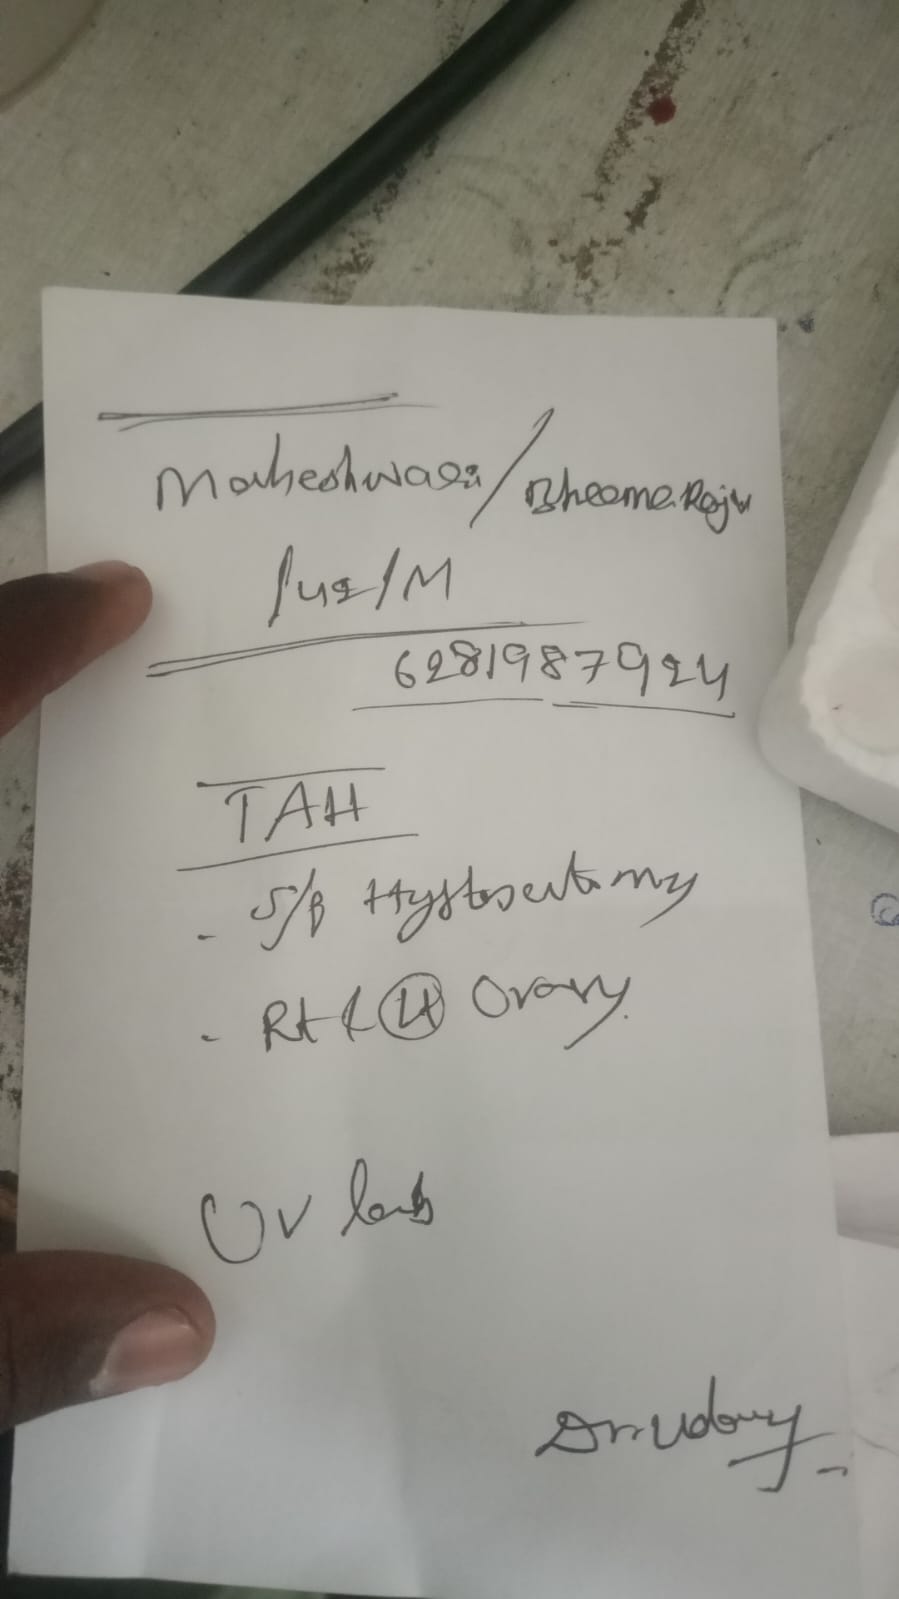 Maheshwari/BheemaRaju
/42/M
6281987924
TAH
- S/B Hysterectomy
- Rt & Lt Ovary.
UV labs
Dr. Uday